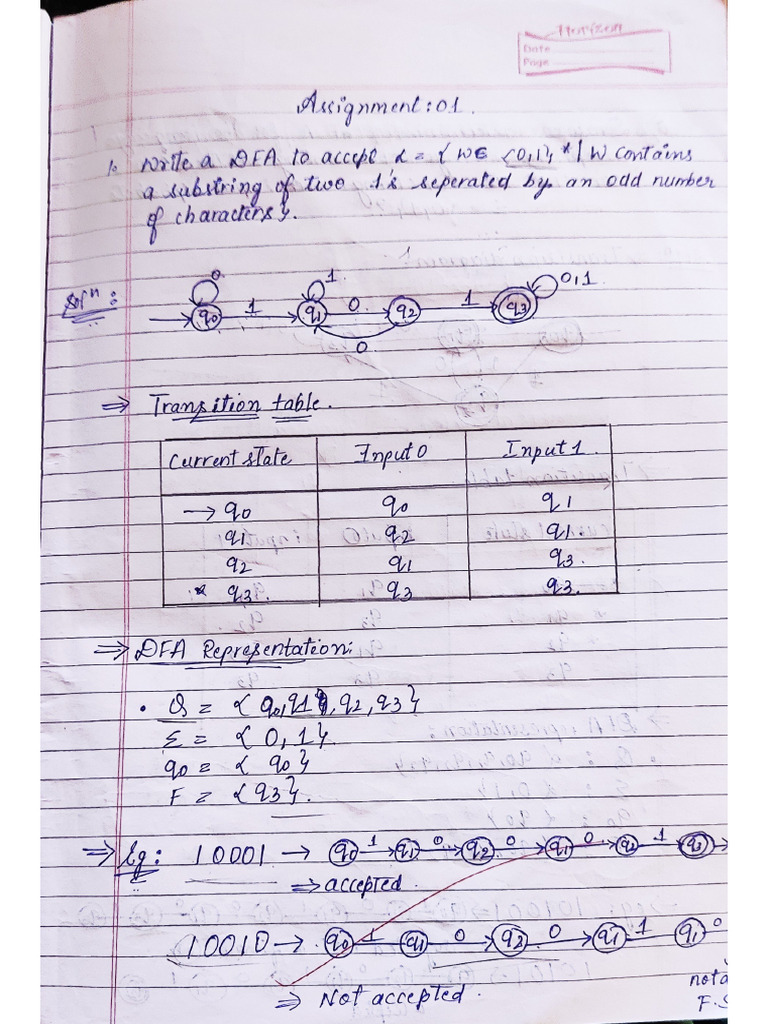 Horizon
Date
Page
Assignment: 01.
1. Write a DFA to accept L = { W ∈ {0,1}* | W contains
a substring of two 1's seperated by an odd number
of characters}.
Solⁿ:
0 1 0,1
→ q0 1 q1 0 q2 1 q3
0
⇒ Transition table.
Current state Input 0 Input 1
→ q0 q0 q1
q1 q2 q1.
q2 q1 q3.
* q3. q3 q3.
⇒ DFA Representation:
• Q = { q0, q1, q2, q3}
Σ = { 0, 1}.
q0 = { q0}
F = {q3}.
⇒ Eg: 10001 → q0 1 q1 0 q2 0 q1 0 q2 1 q3
⇒ accepted.
10010 → q0 1 q1 0 q2 0 q1 1 q1 0
⇒ Not accepted.